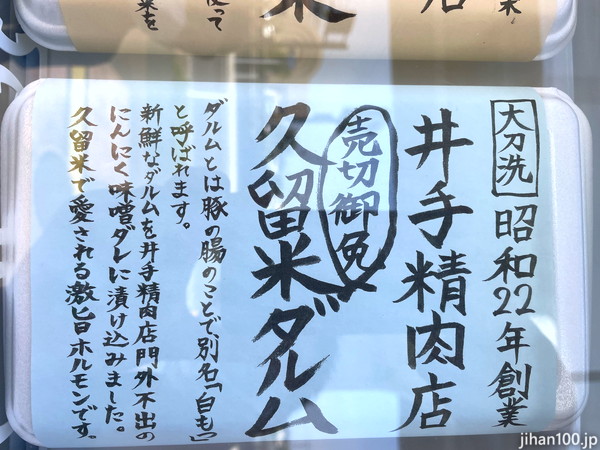 大刀洗 昭和22年創業
井手精肉店
売切御免
久留米ダルム
ダルムとは豚の腸のことで別名「白も」
と呼ばれます。
新鮮なダルムを井手精肉店門外不出の
にんにく味噌ダレに漬け込みました。
久留米で愛される激旨ホルモンです。
jihan100.jp